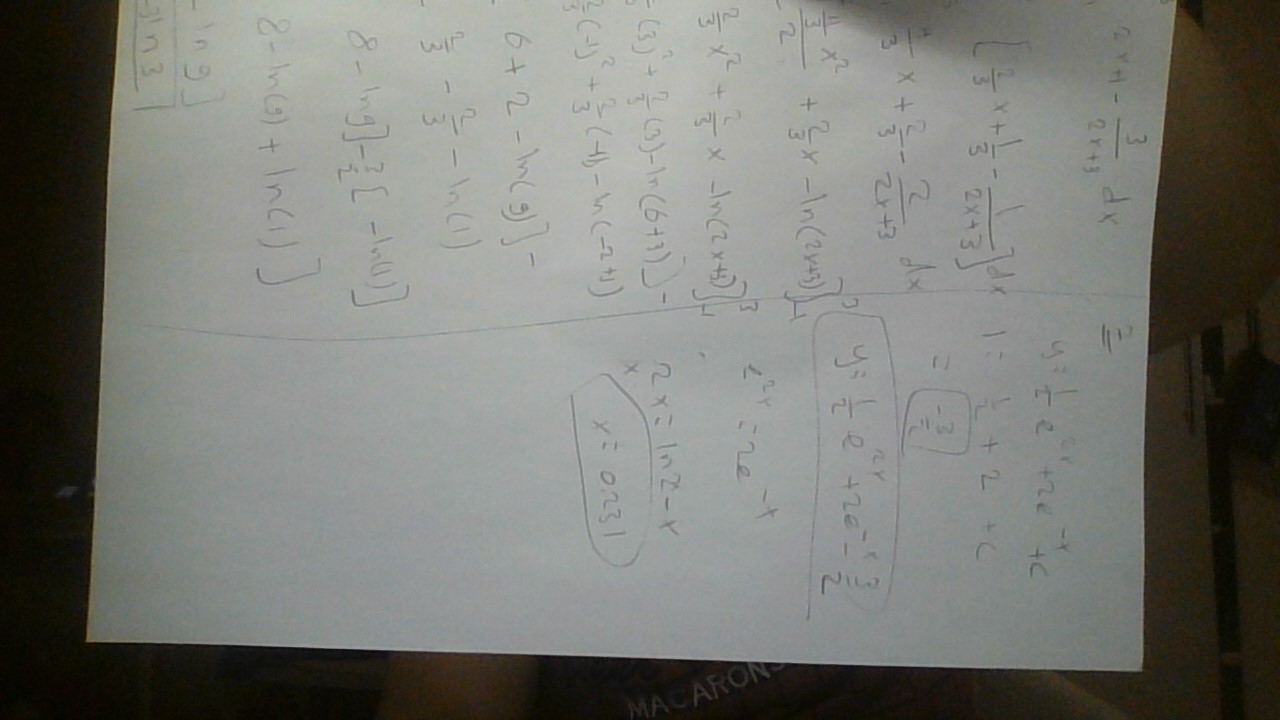 2x+1 - 3/(2x+3) dx
[2/3 x + 1/3 - 1/(2x+3)] dx
4/3 x + 2/3 - 2/(2x+3) dx
4/3 x² / 2 + 2/3 x - ln(2x+3)]
2/3 x² + 2/3 x - ln(2x+3)]
(3)² + 2/3 (3) - ln(6+3)] -
2/3 (-1)² + 2/3 (-1) - ln(-2+3)
6 + 2 - ln(9)] -
2/3 - 2/3 - ln(1)
8 - ln 9] - 3/2 [ - ln(1)]
8 - ln(9) + ln(1)]
- ln 9]
3 ln 3
2
y = 1/2 e^2x + 2e^-x + c
1 = 1/2 + 2 + c
= -3/2
y = 1/2 e^2x + 2e^-x - 3/2
e^2x = 2e^-x
2x = ln 2 - x
x
x = 0.231
MACARONS